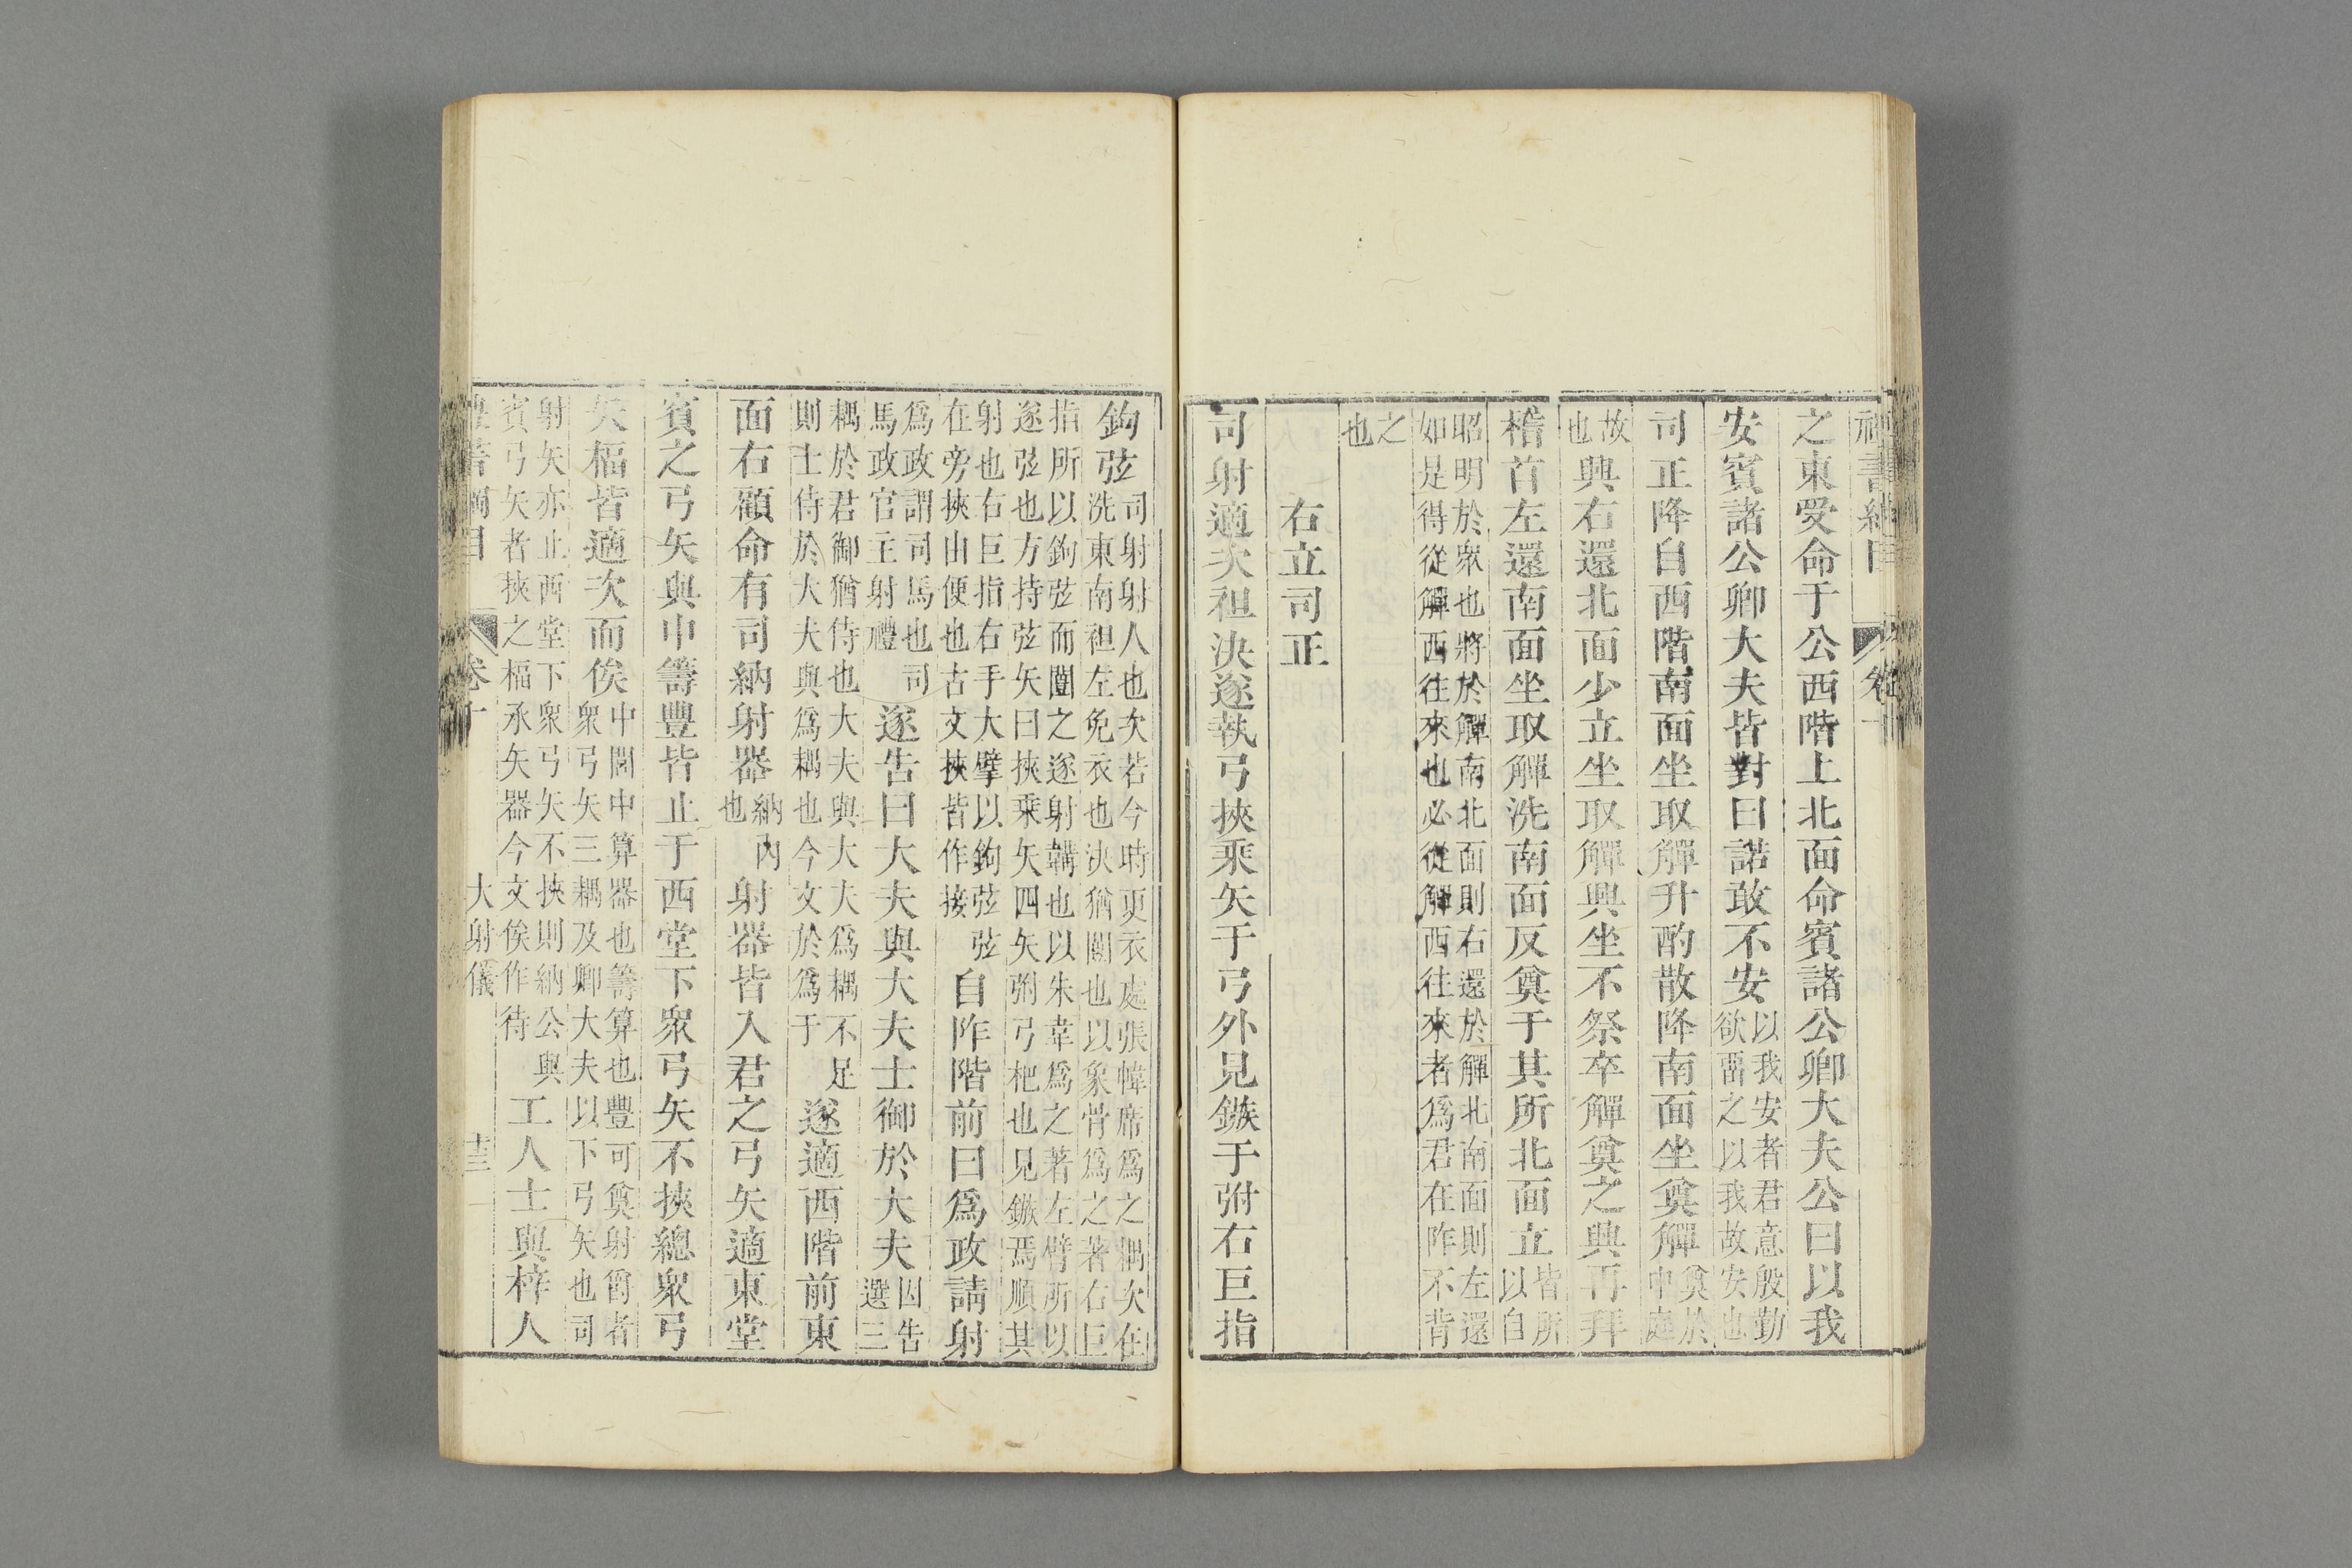 禮書綱目 卷十
之東受命于公西階上北面命賓諸公卿大夫公曰以我
安賓諸公卿大夫皆對曰諾敢不安以我安者君意殷勤欲畱之以我故安也
司正降自西階南面坐取觶升酌散降南面坐奠觶奠於中庭
故也興右還北面少立坐取觶興坐不祭卒觶奠之興再拜
稽首左還南面坐取觶洗南面反奠于其所北面立皆所以自
昭明於衆也將於觶南北面則右還於觶北南面則左還
如是得從觶西往來也必從觶西往來者爲君在阼不背
之也
右立司正
司射適次袒決遂執弓挾乘矢于弓外見鏃于弣右巨指
鉤弦司射射人也次若今時更衣處張幃席爲之耦次在洗東南袒左免衣也決猶闓也以象骨爲之著右巨
指所以鉤弦而闓之遂射韝也以朱韋爲之著左臂所以
遂弦也方持弦矢曰挾乘矢四矢弣弓杷也見鏃焉順其
射也右巨指右手大擘以鉤弦弦在旁挾由便也古文挾皆作接自阼階前曰爲政請射
爲政謂司馬也司馬政官主射禮遂告曰大夫與大夫士御於大夫因告選三
耦於君御猶侍也大夫與大夫爲耦不足則士侍於大夫與爲耦也今文於爲于遂適西階前東
面右顧命有司納射器納內也射器皆入君之弓矢適東堂
賓之弓矢與中籌豐皆止于西堂下衆弓矢不挾總衆弓
矢楅皆適次而俟中閭中算器也籌算也豐可奠射爵者衆弓矢三耦及卿大夫以下弓矢也司
射矢亦止西堂下衆弓矢不挾則納公與賓弓矢者挾之楅承矢器今文俟作待工人士與梓人
禮書綱目 卷十 大射儀 十三